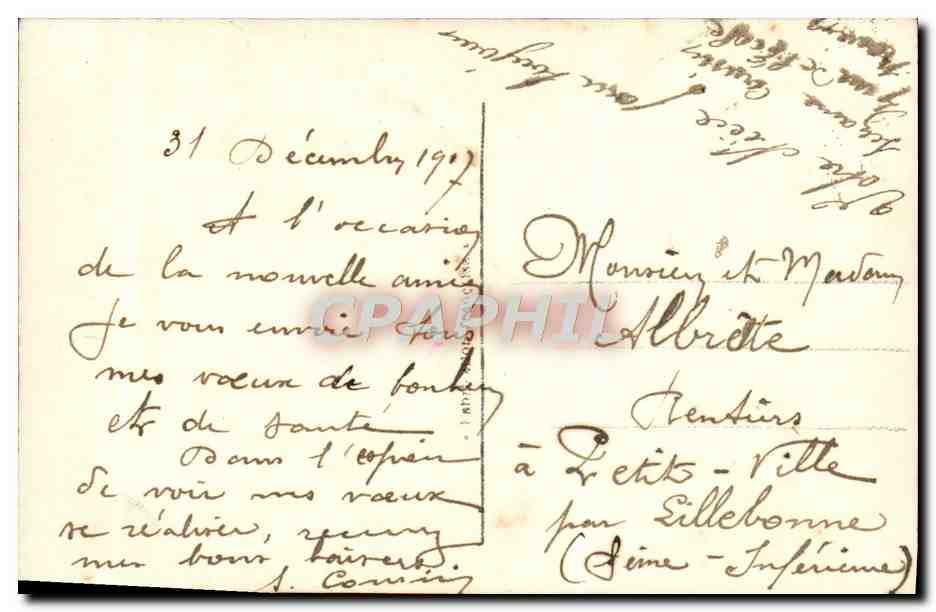 31 Décembre 1917
A l'occasion
de la nouvelle année
je vous envoie tous
mes vœux de bonheur
et de santé
Dans l'espoir
de voir mes vœux
se réaliser, recevez
mes bons baisers
S. Cousin
Votre nièce
Suzanne Cousin
Monsieur et Madame
Albrette
Rentiers
à Petit-Ville
par Lillebonne
(Seine-Inférieure)
CPAPHIL